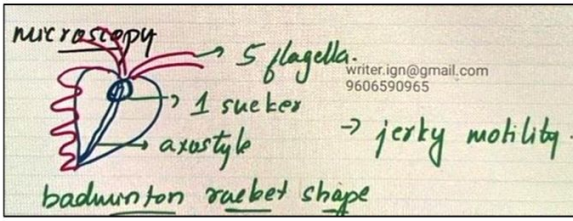 microscopy
→ 5 flagella.
writer.ign@gmail.com
9606590965
→ 1 sucker
→ axostyle
→ jerky motility.
badminton racket shape